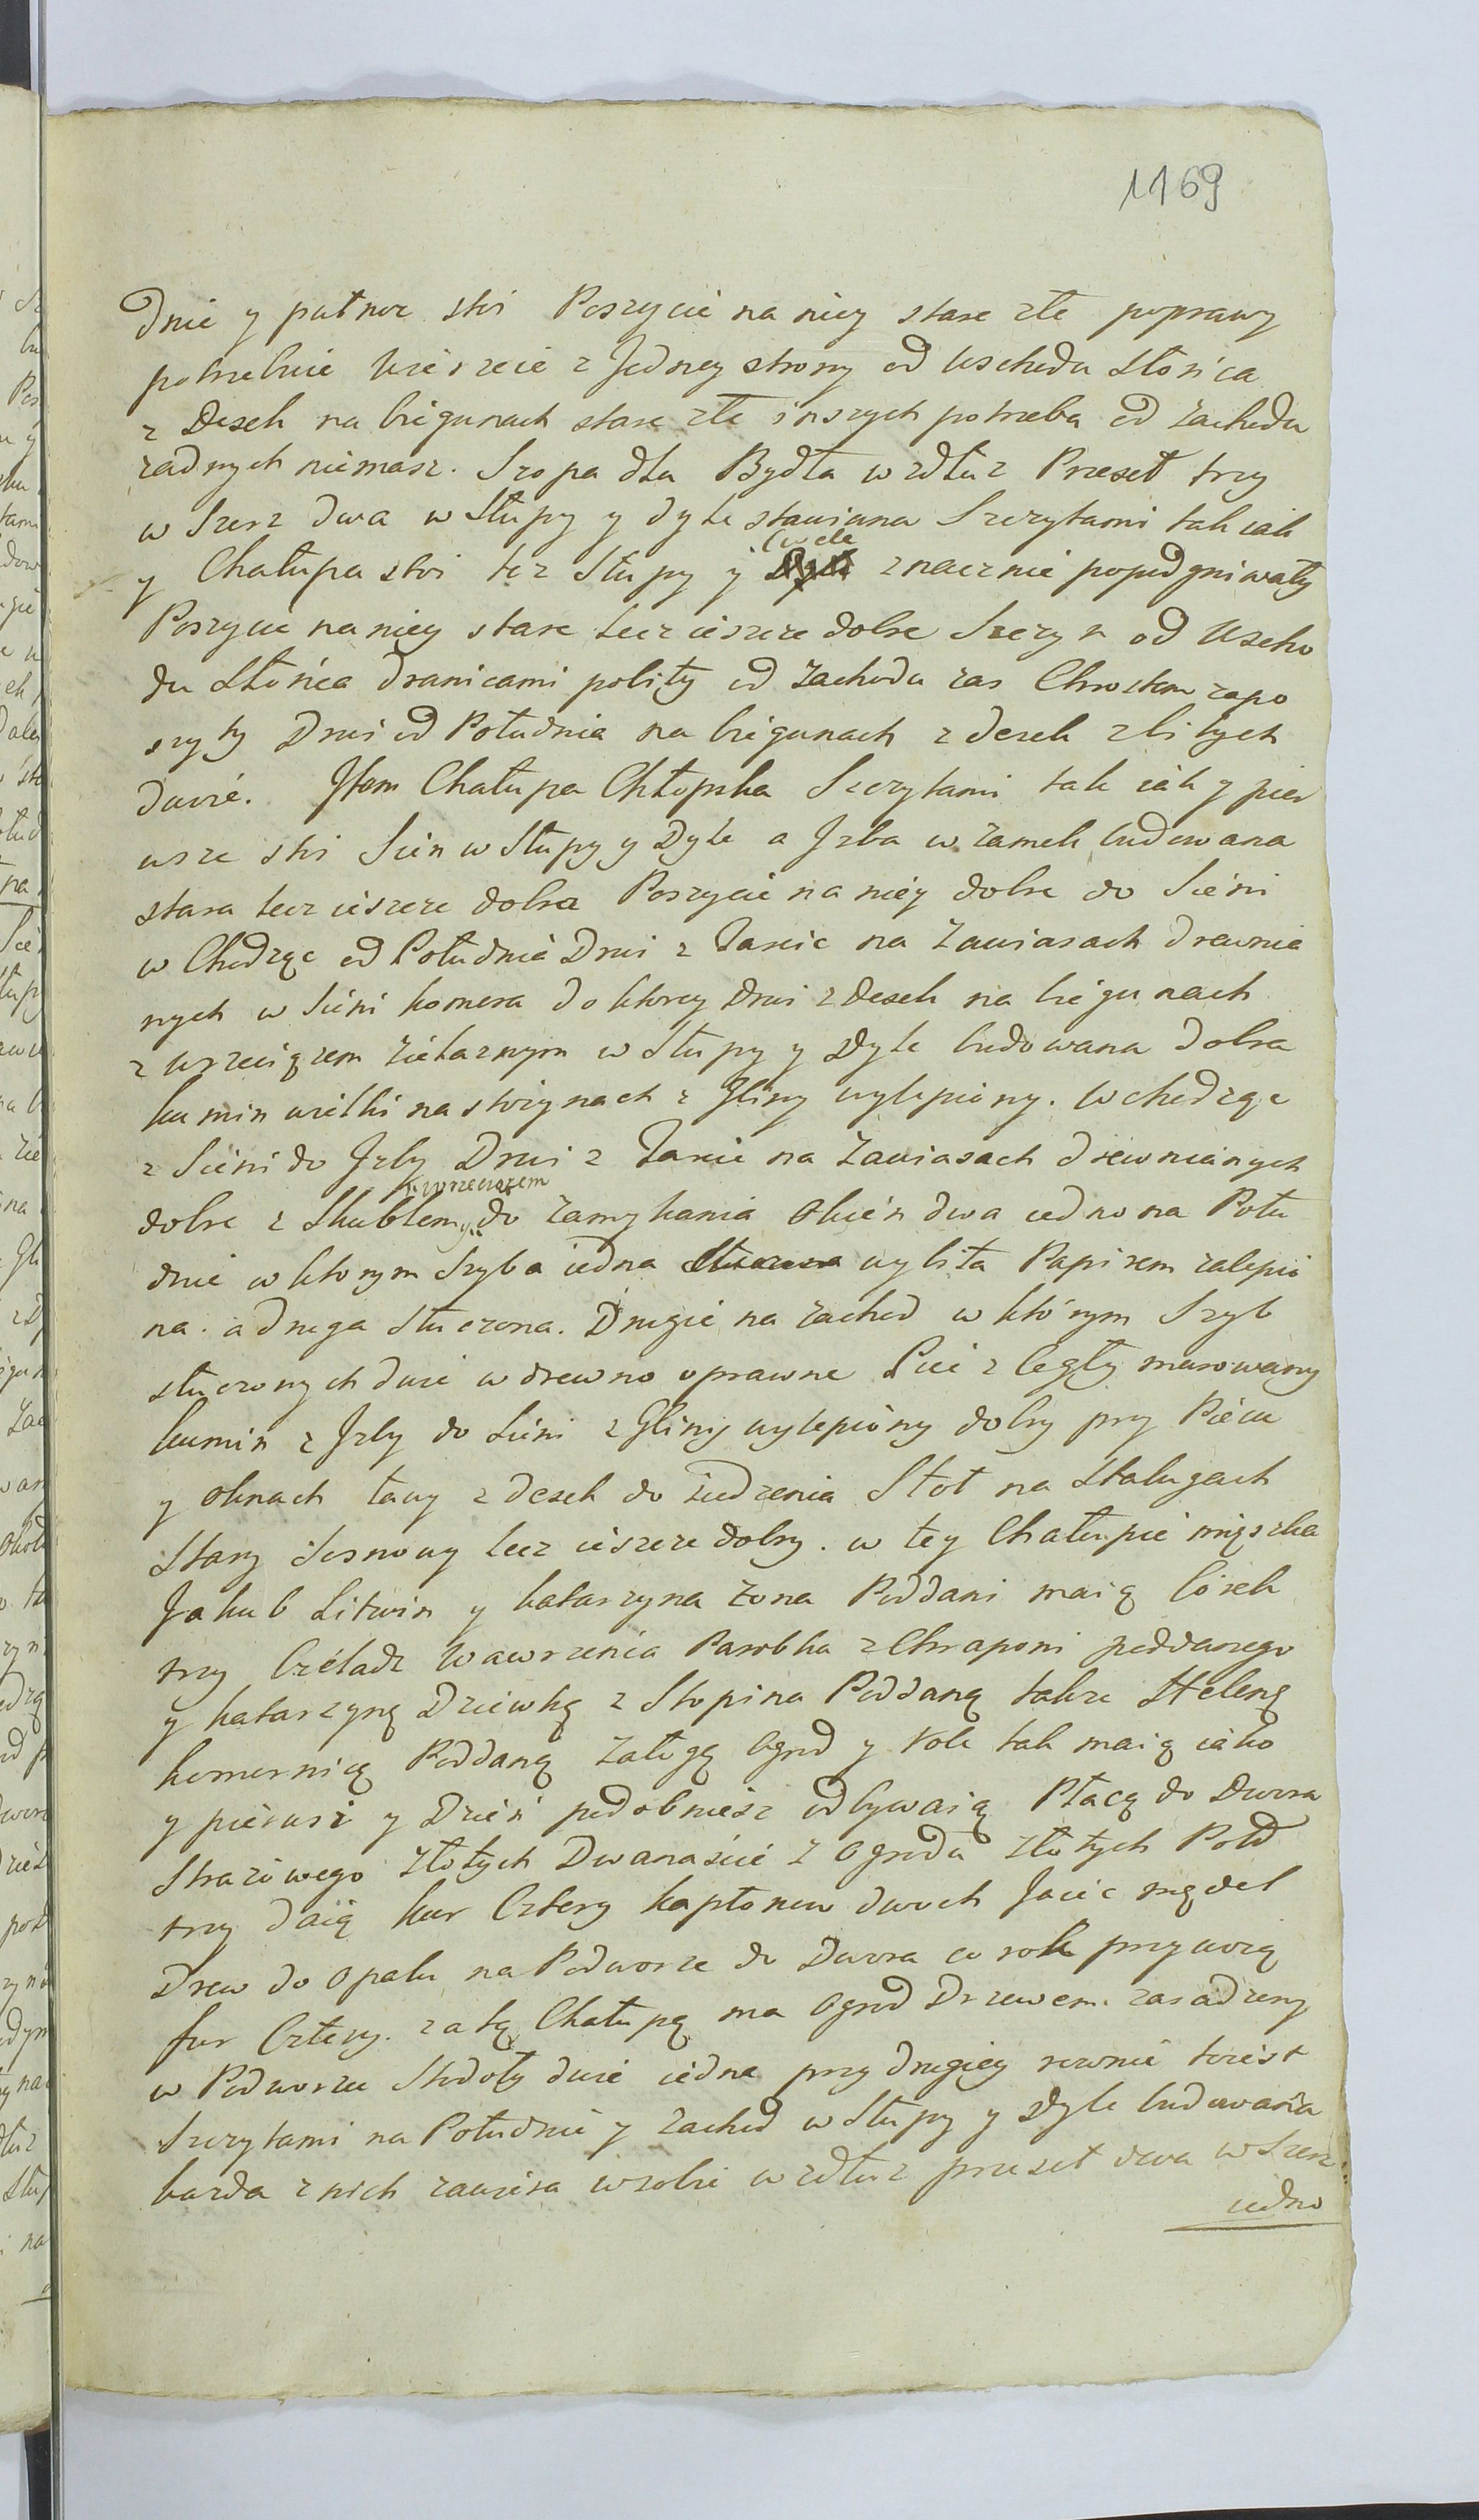 1169
dnie y putnoc stoi Poszycie na niey stare złe poprawy
potrzebuie Wierzeie z Jedney strony od Wschodu Słońca
z Desek na biegunach stare złe inszych potrzeba od Zachodu
zadnych niemasz. Szopa dla Bydła w zdłuz Przeseł trzy
w Szerz dwa w Słupy y dyle stawiana Szczytami tak iak
y Chałupa stoi tez Słupy y Cwele znacznie popodgniwały
Poszycie na niey stare lecz ieszcze dobre Szczyt od Wscho
du Słońca dranicami pobity od Zachodu zas Chrostem zapo
szyty Drwi od Południa na biegunach z desek zbitych
dwoie. Item Chałupa Chłopska Szczytami tak iak y pier
wsza stoi Sien w Słupy y Dyle a Jzba w zamek budowana
stara lecz ieszcze dobra Poszycie na niey dobre do Sieni
w Chodząc od Południa Drwi z Tarcic na Zawiasach drewnia
nych w Sieni komora do ktorey Drwi z Desek na biegunach
z wrzeciązem żielaznym w Słupy y Dyle budowana dobra
kumin wielki na stoiynach z Gliny wylepiony. Wchodząc
z Sieni do Jzby Drwi z Tarcic na Zawiasach drewnianych
dobre z Skublem y wrzeciązem do Zamykania Okien dwa iedno na Połu
dnie w ktorym Szyba iedna wybita Papirem zalepio
na. a druga stuczona. Drugie na zachod w którym Szyb
stuczonych dwie w drewno oprawne Piec z Cegły murowany
kumin z Jzby do Sieni z Gliny wylepiony dobry przy Piecu
y oknach ławy z desek do siedzenia Stoł na Stalugach
Stary Sosnowy lecz ieszcze dobry. w tey Chałupie mięszka
Jakub Litwin y katarzyna Zona Poddani maią Córek
trzy Czéladz Wawrzenia Parobka z Chraponi poddanego
y katarzynę Dziewkę z Słopina Poddaną takze Helenę
komornicę Poddaną Załogę Ogrod y Role tak maią iako
y piérwsi y Dzień podobniesz odbywaią Płacą do Dwora
Strazowego Złotych Dwanaście z Ogroda Złotych Połd
trzy daią kur Cztery kapłonow dwoch Jaiec męndel
Drew do Opału na Podworze do Dwora co rok przywozą
fur Cztery. za tą Chałupą ma Ogrod Drzewem zasadzony
w Podworzu Stodoły dwie iedna przy drugiey rownie tez
Szczytami na Południe y Zachod w Słupy y Dyle budowana
kazda z nich zawiera w sobie w zdłuz przeseł dwa w Szerz
iedno